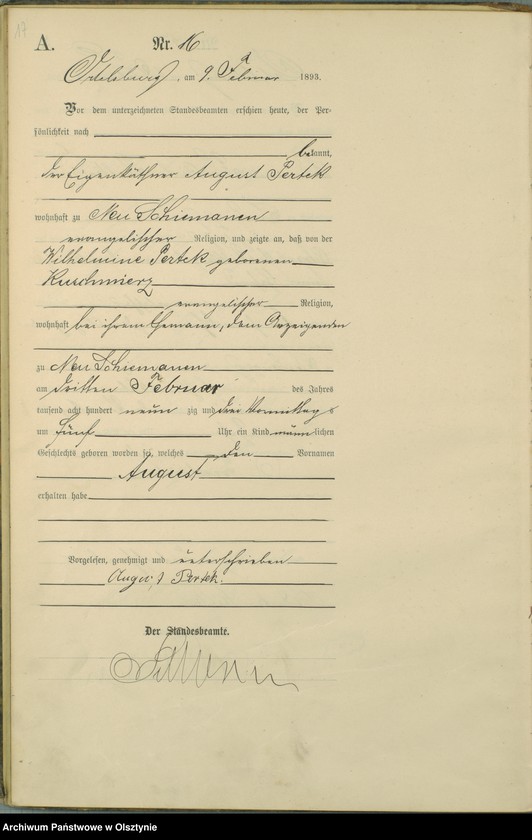 17
A.
Nr. 16
Ortelsburg, am 9. Februar 1893.
Vor dem unterzeichneten Standesbeamten erschien heute, der Per-
sönlichkeit nach
bekannt,
der Eigenkäthner August Pertek
wohnhaft zu Neu Schiemanen
evangelischer Religion, und zeigte an, daß von der
Wilhelmine Pertek geborenen
Kuschmierz
evangelischer Religion,
wohnhaft bei ihrem Ehemann, dem Anzeigenden
zu Neu Schiemanen
am dritten Februar des Jahres
tausend acht hundert neun zig und drei Vormittags
um fünf Uhr ein Kind männlichen
Geschlechts geboren worden sei, welches den Vornamen
August
erhalten habe
Vorgelesen, genehmigt und unterschrieben
August Pertek
Der Standesbeamte.
Archiwum Państwowe w Olsztynie